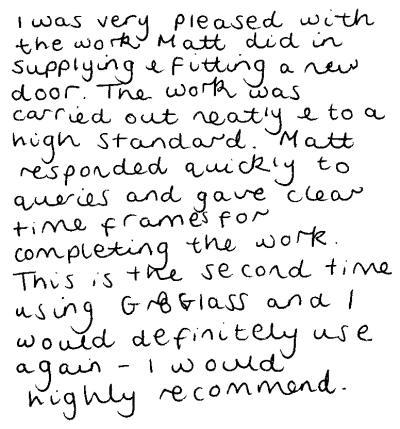 I was very pleased with
the work Matt did in
supplying & fitting a new
door. The work was
carried out neatly & to a
high standard. Matt
responded quickly to
queries and gave clear
time frames for
completing the work.
This is the second time
using Glass and I
would definitely use
again - I would
highly recommend.